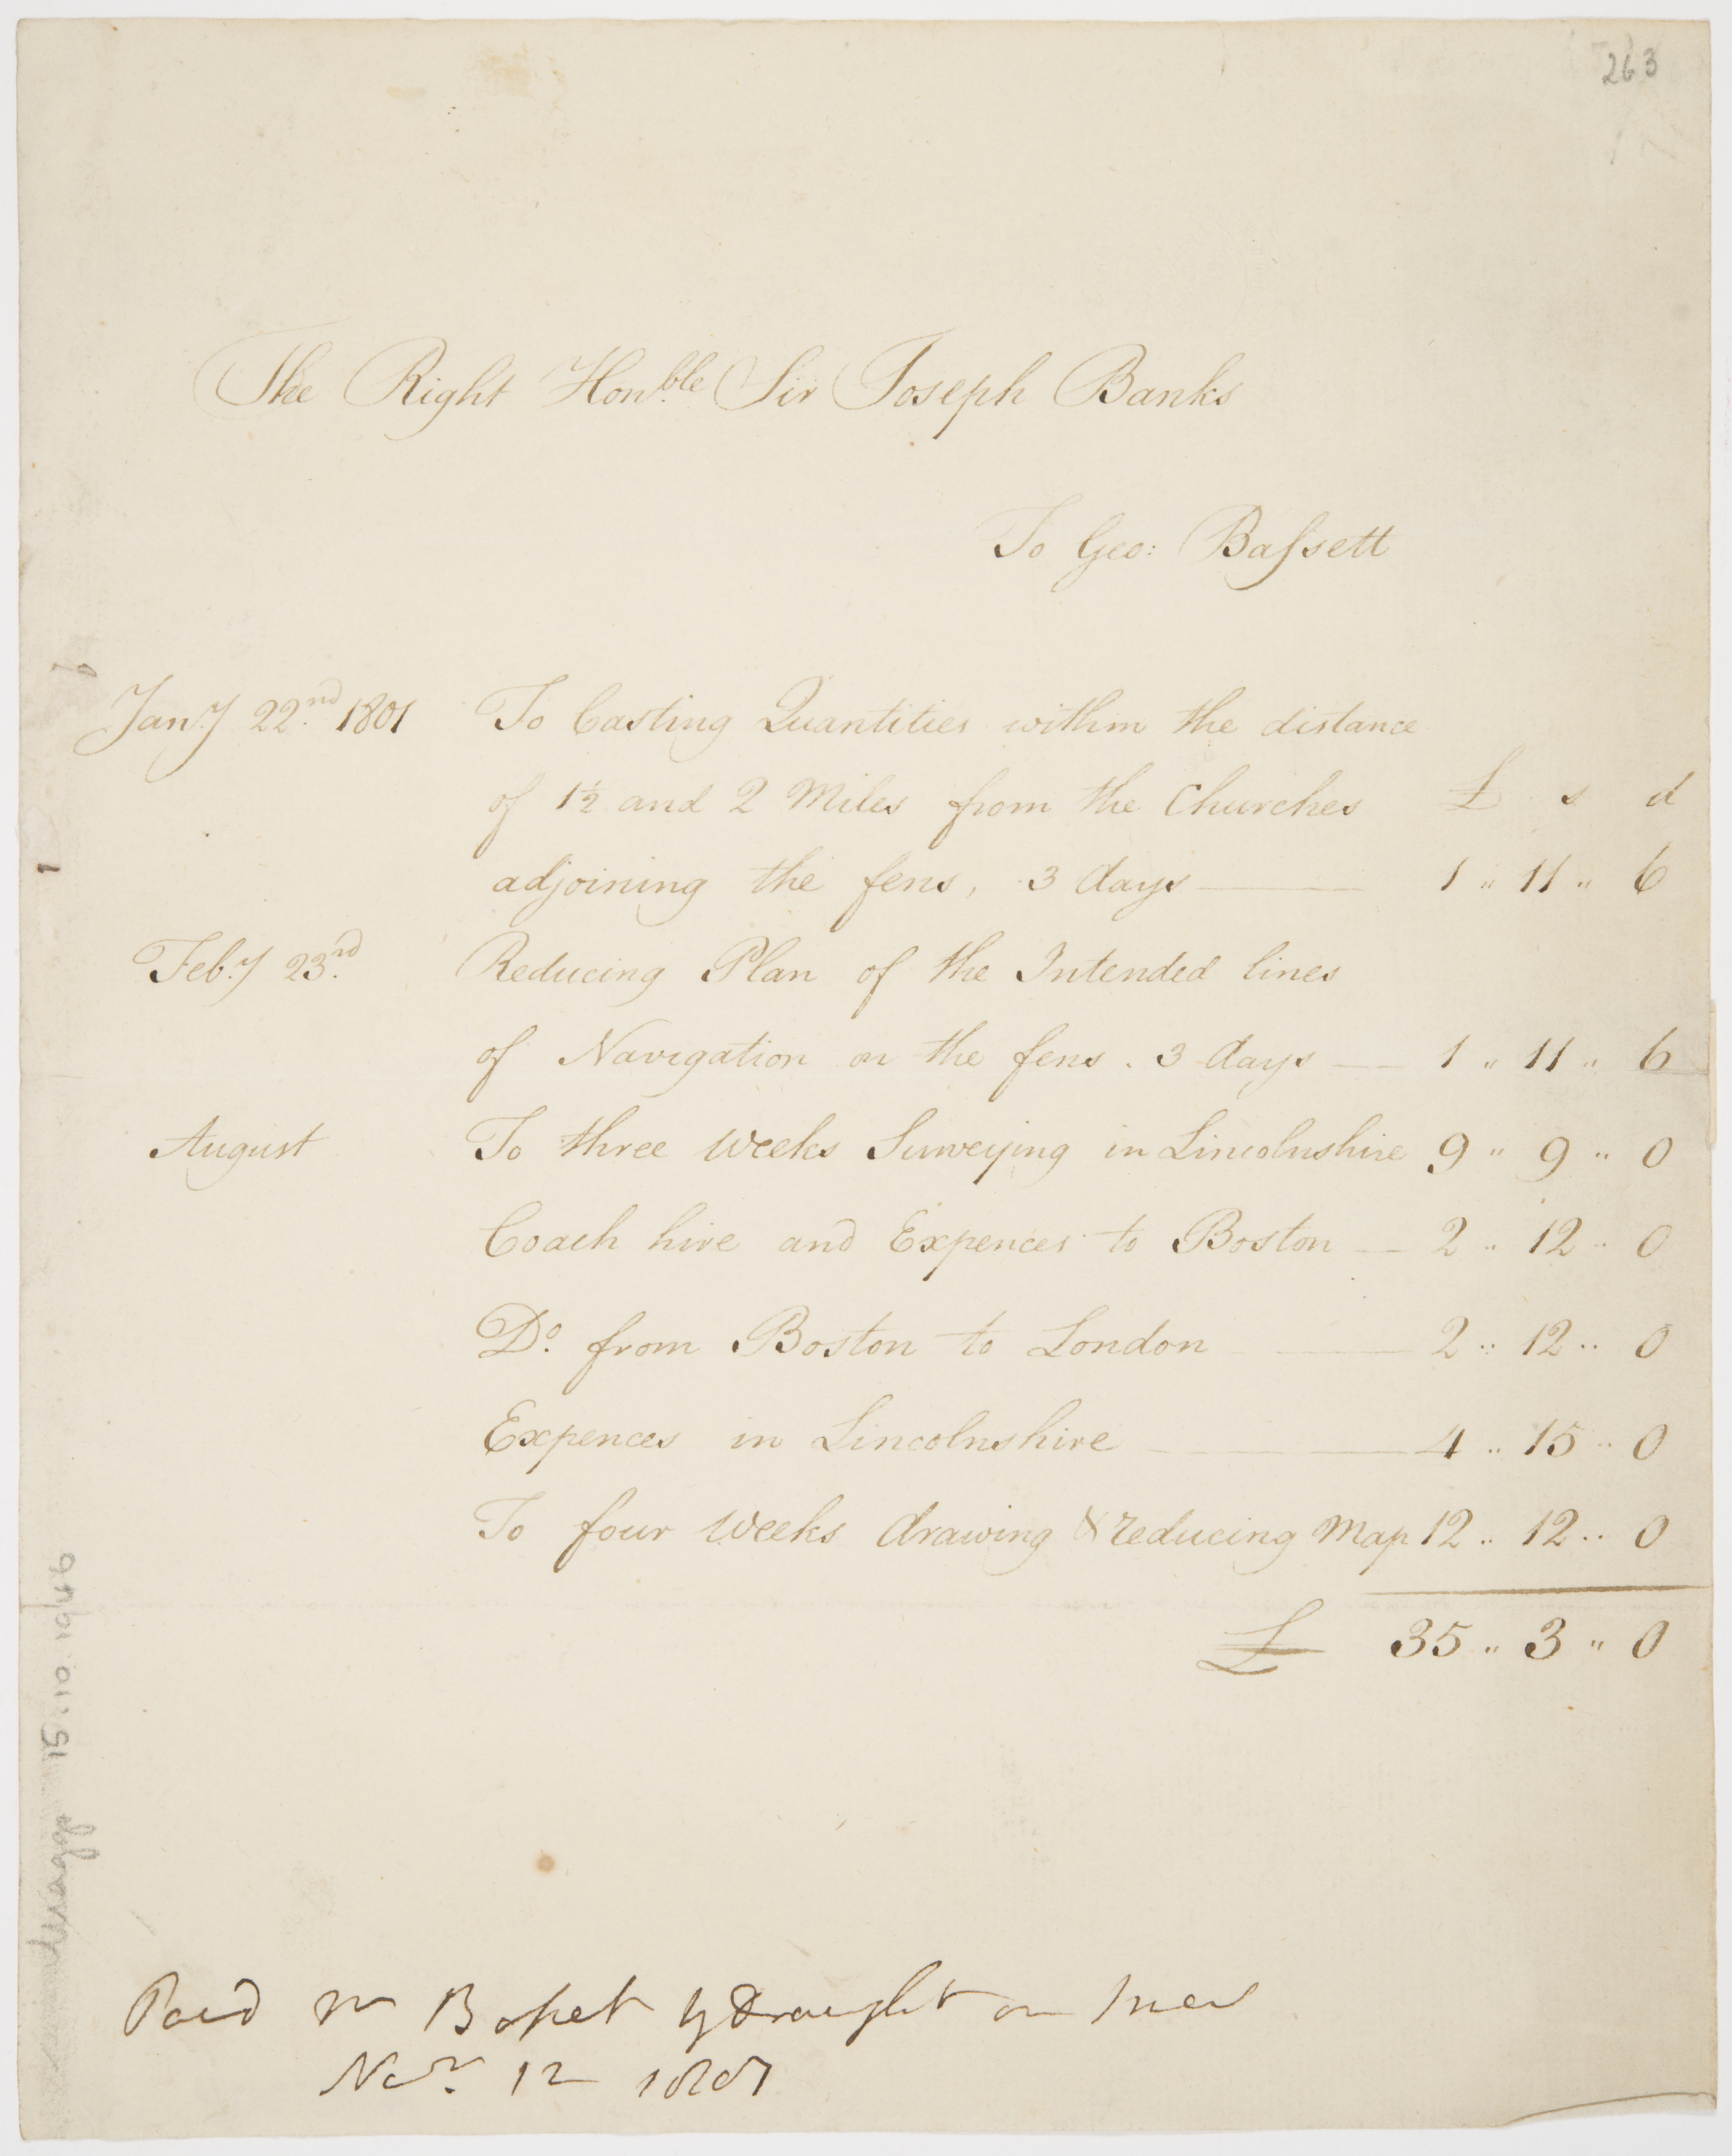 263
The Right Honble Sir Joseph Banks
To Geo: Baſsett
Jany 22nd 1801 To Casting Quantities within the distance
of 1½ and 2 Miles from the Churches £ s d
adjoining the fens, 3 days — 1 " 11 " 6
Feby 23rd Reducing Plan of the Intended lines
of Navigation on the fens. 3 days — 1 " 11 " 6
August To three weeks Surveying in Lincolnshire 9 " 9 " 0
Coach hire and Expences to Boston — 2 " 12 " 0
Do. from Boston to London — 2 " 12 " 0
Expences in Lincolnshire — 4 " 15 " 0
To four weeks drawing & reducing Map 12 " 12 " 0
£ 35 " 3 " 0
Paid Mr Baſset by Draught on
Novr 12 1801